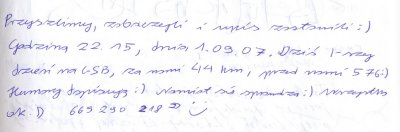 Przyszliśmy, zobaczyli i wpis zostawili :)
Godzina 22.15, dnia 1.09.07. Dziś 1-szy
dzień na GSB, za nami 44 km, przed nami 576:)
Humory dopisują :) Namiot się sprawdza :) Wszystko
ok. :D 669 290 218